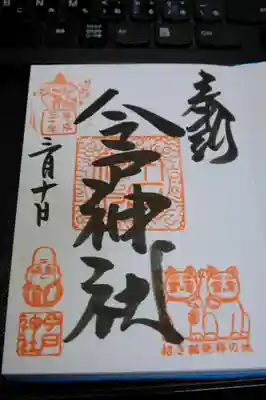 奉拝
今戸神社
三月十日
招き猫発祥の地
今戸
神社